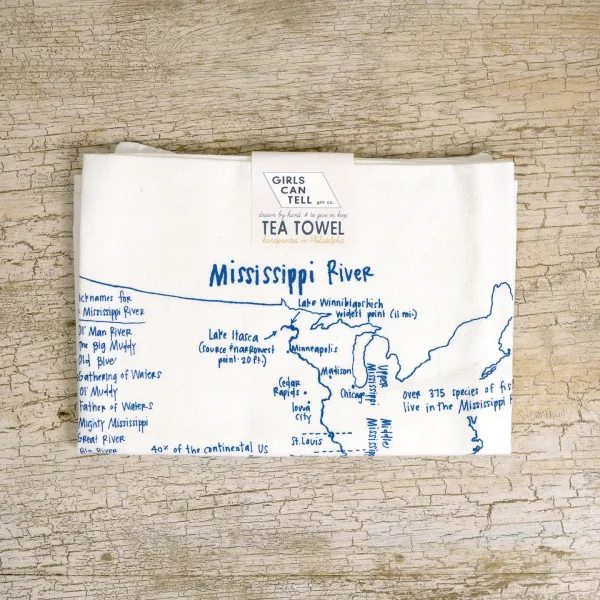 GIRLS
CAN
TELL gift co.
drawn by hand & to give or keep
TEA TOWEL
handprinted in Philadelphia
Mississippi River
icknames for
Mississippi River
Ol' Man River
The Big Muddy
Old Blue
Gathering of Waters
Ol' Muddy
Father of Waters
Mighty Mississippi
Great River
Big River
Lake Winnibigoshish
widest point (11 mi)
Lake Itasca
(source & narrowest
point-20 ft.)
Minneapolis
Madison
Chicago
Cedar
Rapids
Iowa
City
St. Louis
Upper
Mississippi
Middle
over 375 species of fis
live in the Mississippi
40% of the continental US